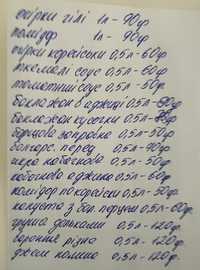 огірки гілі 1л - 90ф
помідор 1л - 90ф
огірки корейськи 0,5л - 60ф
ткемалі соус 0,5л - 60ф
томатний соус 0,5л - 50ф
баклажан в аджиці 0,5л - 60ф
баклажан кусочки 0,5л -
борщова заправка 0,5л - 50ф
болгарс. перец 0,5л - 90ф
ікра кабачкова 0,5л - 50ф
кабачкова аджика 0,5л - 60ф
помідор по корейски 0,5л - 50ф
капуста з бол. перцем 0,5л - 60ф
груша дольками 0,5л - 120ф
варення різне 0,5л - 120ф
джем малина 0,5л - 120ф